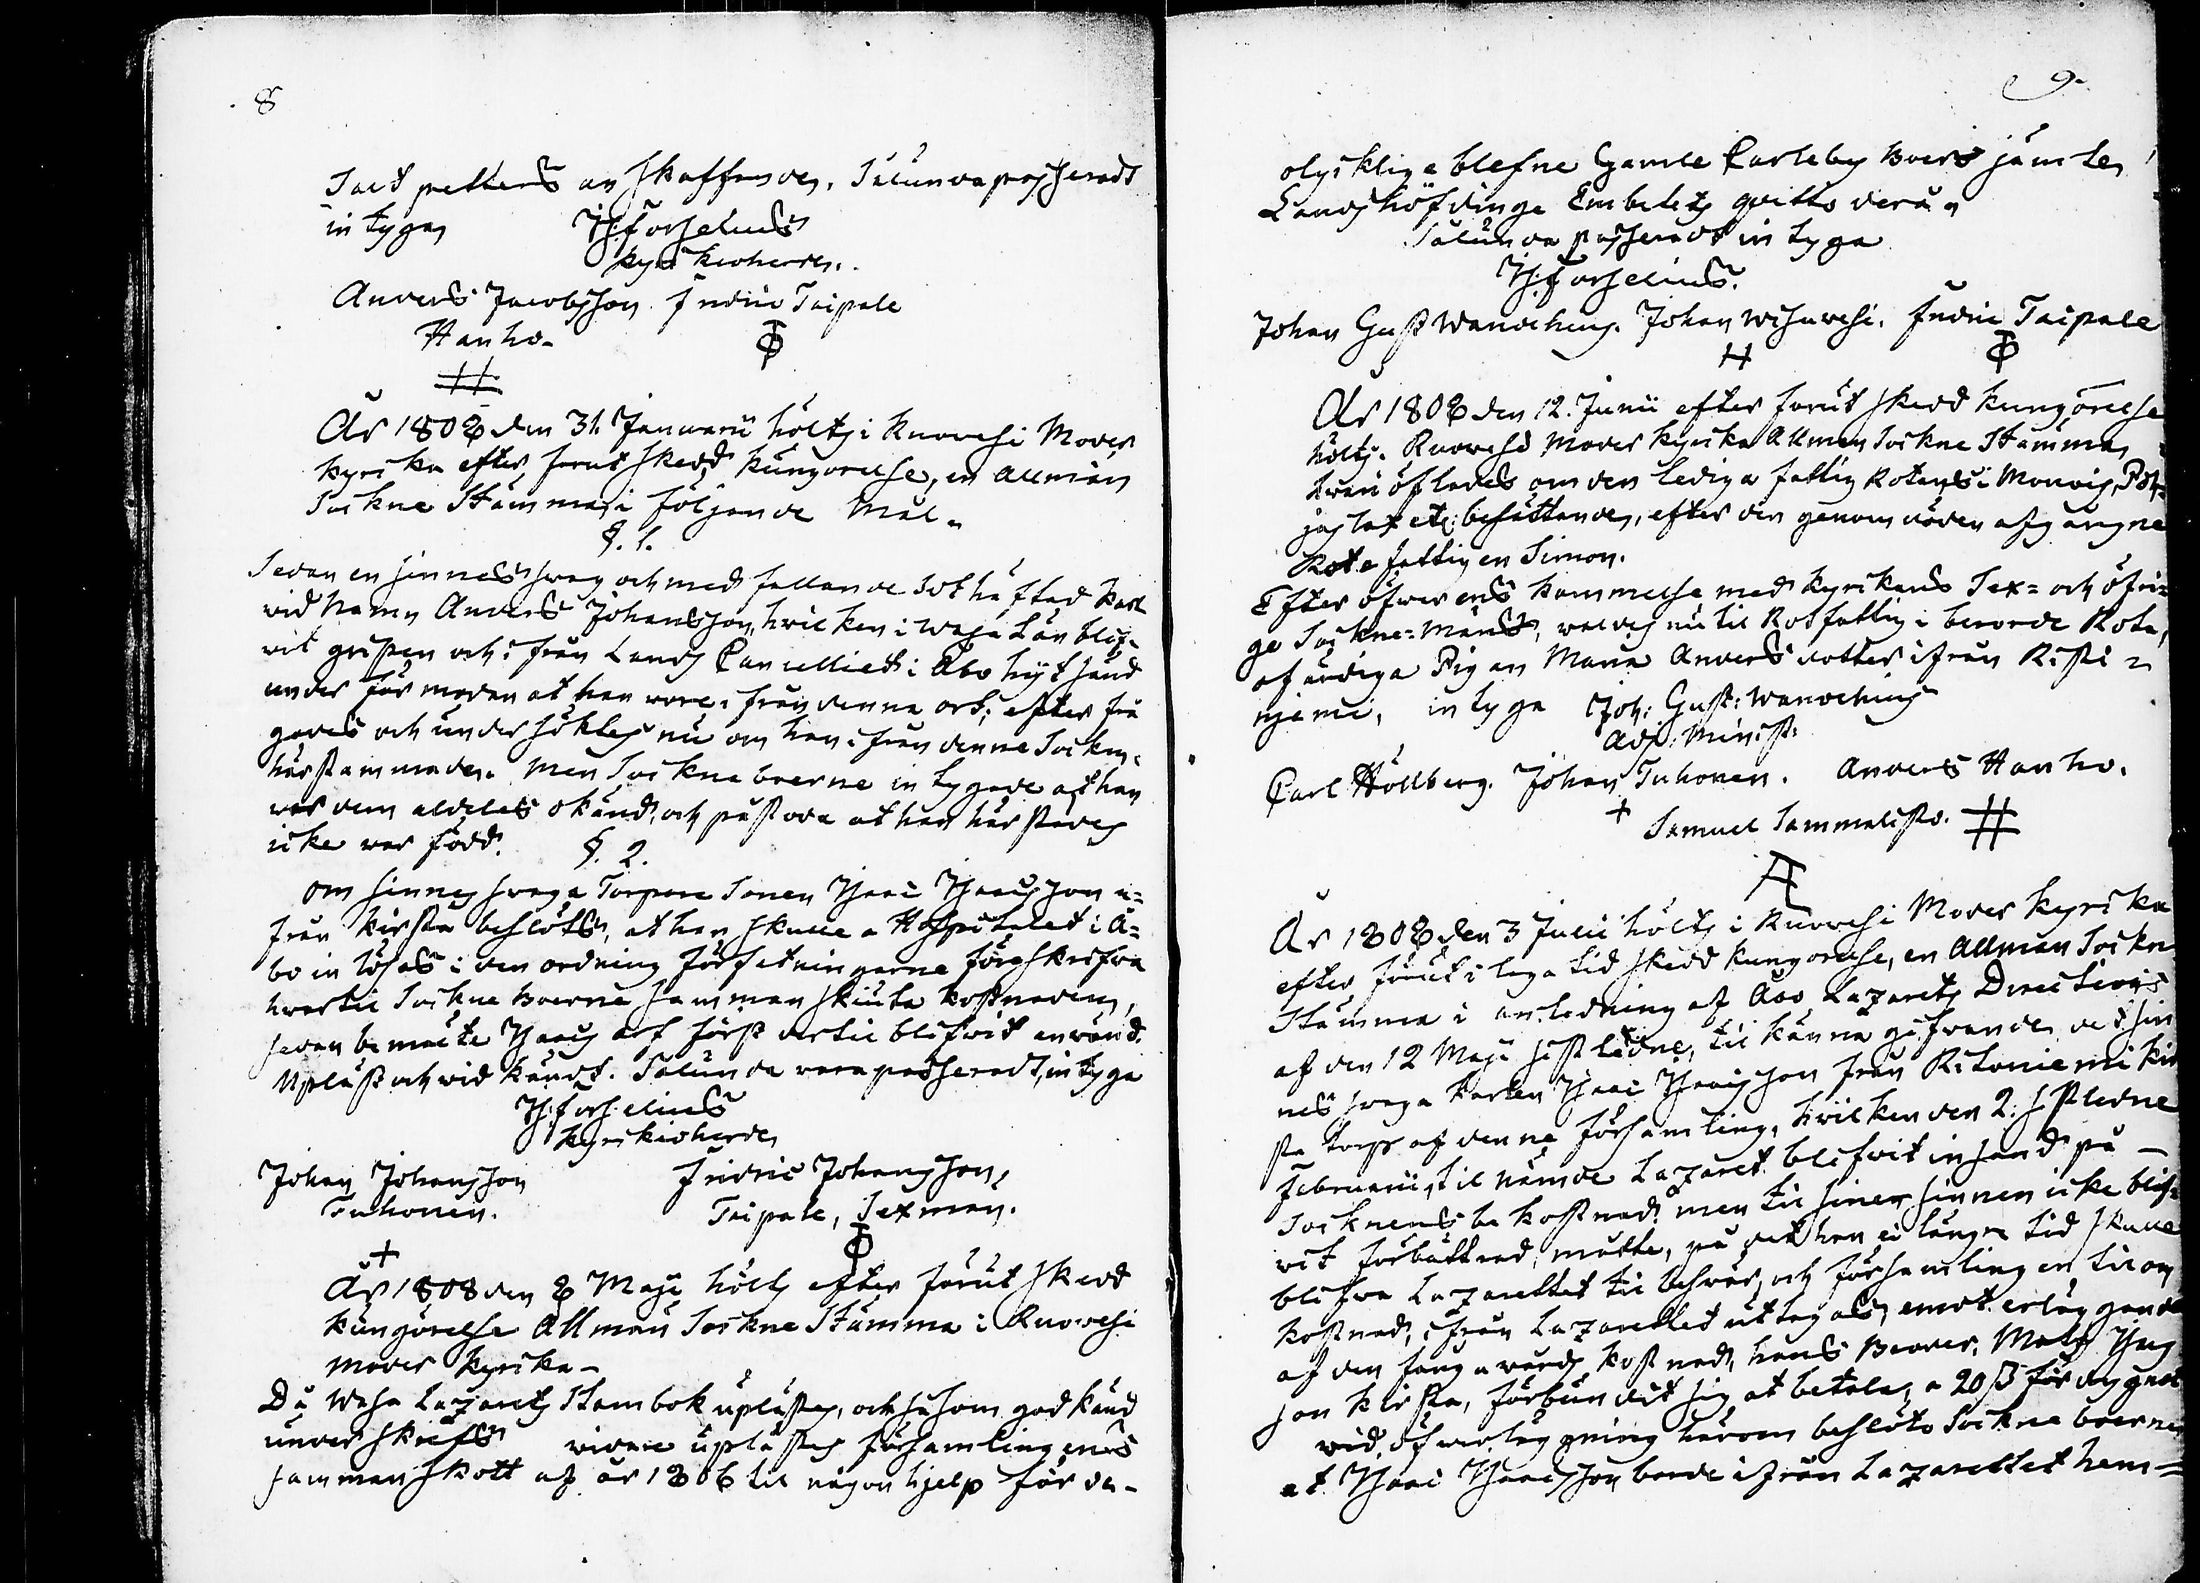 8
Salt petters anskaffande. Sålunda passeradt
intyga
H: Forselius
Kyrckioherde.
Anders Jacobsson Fridric Taipale
Hanho.
År 1808 den 31. Januarii hölts i Ruowesi Moder
kyrcka efter förut skedd kungörelse, en Allmän
Sockne Stämma, i följande Mål.
§. 1.
Sedan en sinnes swag och med fallande Sot häftad karl
wid namn Anders Johansson, hwilcken i Wasa Län blif-
wit gripen och ifrån Lands Cancelliet i Åbo hyt sänd
under förmodan at han wore ifrån denna ort; efter frå
gades och undersöktes nu om han ifrån denne Sockn
härstammade. Men Socknboerne intygade at han
war dem aldeles okänd, och påstoda at han härstädes
icke war född.
§. 2.
Om sinnes swaga Torpare Sonen Isaac Isaacsson i-
från Kirstu beslöts, at han skulle a Hospitalet i Å-
bo inlösas i den ordning författningarne föreskrifwa
hwartil Sockne Boerne samman skiuta kostnaden,
sedan bemälte Isaacs arf först dertil blifwit anwänd.
Upläst och wid kändt. Sålunda wara passeradt, intyga
H: Forselius
Kyrckioherde
Johan Johansson Fridric Johansson
Tuhonen. Taipale, Sexman.
År 1808 den 8 Maji hölts efter förut skedd
kungörelse Allmän Sockne Stämma i Ruowesi
moder kyrcka.
Då Wasa Lazarets Stambok uplästes, och såsom godkänd
underskrefs widare uplästes församlingens
sammanskott af år 1806 til någon hjelp för de-
9.
olyckliga blefne Gamle Carleby Boers jämte
Landshöfdinge Embetets qvitto derå.
Sålunda passeradt intyga
H: Forselius.
Johan Gust Wanochius. Johan Wisuwesi. Fridric Taipale
År 1808 den 12. Junii efter förut skedd kungörelse
hölts i Ruowesi Moder kyrcka Allmän Sockne Stämma,
efter den genom döden afgångne
Rote fattigen Simon.
Efter öfwerens kommelse med kyrckans Sex- och öfri-
ge Sockne-Mäns, waldes nu til Rotfattig i berörde Rota,
ofärdiga Pigan Maria Anders dotter ifrån Risti-
njemi, intyga Joh: Gust: Wanochius
Adj: Minist:
Carl Hällberg. Johan Tuhonen. Anders Hanho.
Samuel Sammalisto.
År 1808 den 3 Julii hölts i Ruowesi Moder kyrcka
efter förut i laga tid skedd kungörelse, en Allmän Sockne
Stämma i anledning af Åbo Lazarets Directions
af den 12 Maji sistledne, til känna gifwande, at sin
nes swaga karlen Isaac Isaacsson från Ritoniemi Kir
sta torp af denne församling, hwilcken den 2. sistledne
Februarii, til nämde Lazaret blifwit insänd på
Socknens bekostnad, men til sine sinnen icke blif-
wit förbättrad, måtte, på det han ei längre tid skulle
blifwa Lazarettet til beswär, och församlingen til om
kostnad, ifrån Lazarettet uttagas, emot erläggande
af den fångwårds kostnad, hans Broder, Mats Isaac
son Kirsta, förbundit sig at betala, a 20 ß för dygnet
wid öfwerläggning härom beslöto Sockne boerne
at Isaac Isaacsson borde ifrån Lazarettet hem-